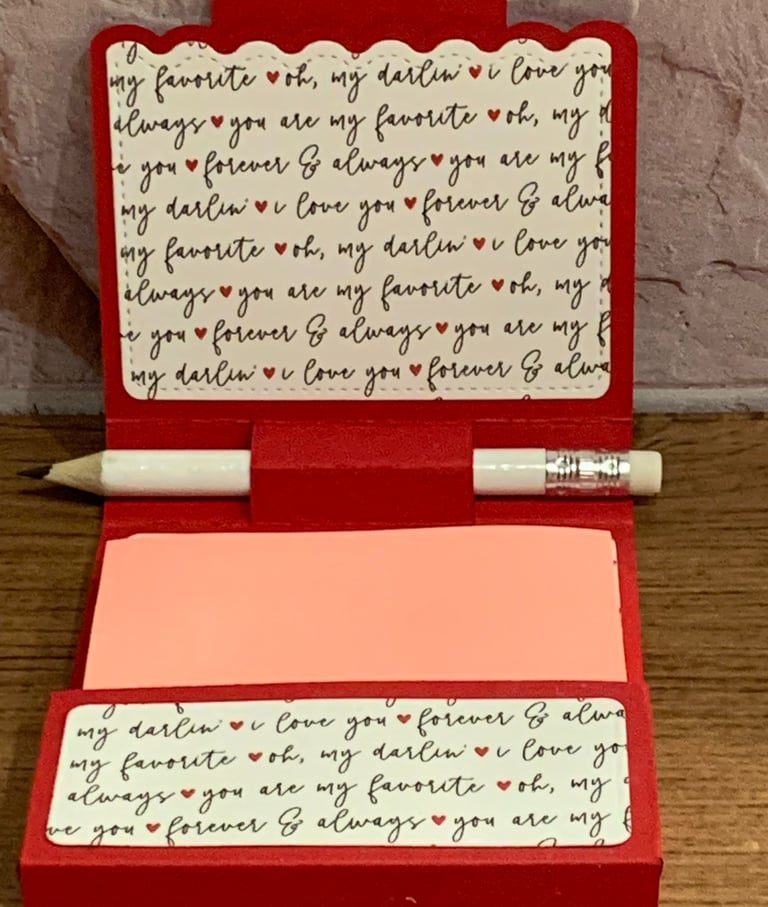 my favorite ♥ oh, my darlin' ♥ i love you
always ♥ you are my favorite ♥ oh, my d
e you ♥ forever & always ♥ you are my f
my darlin' ♥ i love you ♥ forever & alwa
my favorite ♥ oh, my darlin' ♥ i love you
always ♥ you are my favorite ♥ oh, my d
e you ♥ forever & always ♥ you are my f
my darlin' ♥ i love you ♥ forever & alwa
my darlin' ♥ i love you ♥ forever & alwa
my favorite ♥ oh, my darlin' ♥ i love yo
always ♥ you are my favorite ♥ oh, my
ve you ♥ forever & always ♥ you are my f